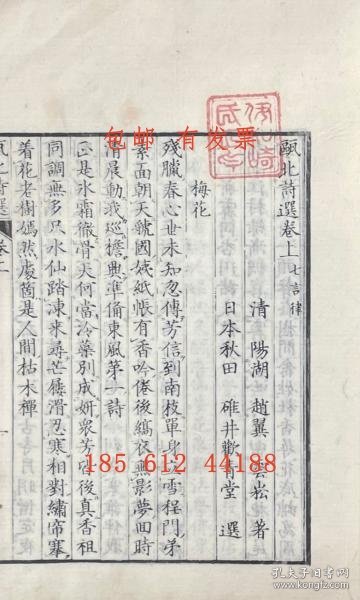 甌北詩選卷上 七言律
清 陽湖 趙翼雲崧 著
日本秋田 碓井歡 堂 選
梅花
殘臘春心世未知忽傳芳信到南枝單身立雪程門弟
素面朝天虢國姨紙帳有香吟倦後縞衣無影夢回時
清晨動我巡檐興準備東風第一詩
正是冰霜徹骨天何當冷蘂別成妍衆芳 後真香祖
同調無多只水仙踏凍來尋芒屨滑忍寒相對繡帘褰
着花老樹嫣然處箇是人間枯木禪
甌北詩選 卷上 一
包邮 有发票
185 612 44188
孔子旧书网